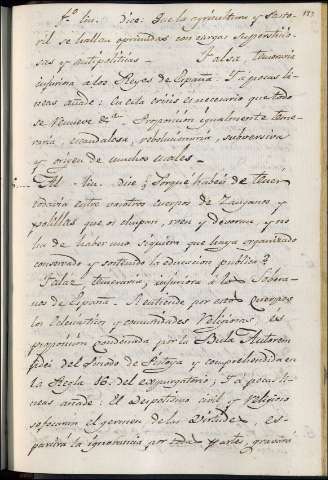 fº lin. dice: Que la agricultura y Pasto-
ril se hallan oprimidas con cargas supersticio-
sas y antipoliticas - Falsa, temeraria
injuriosa a los Reyes de España. Y a pocas li-
neas añade: En esta crisis es necesario que todo
se renueve &ª - Proposicion igualmente teme-
raria, escandalosa, revolucionaria, subversiva
y origen de muchos males -
Al lin. dice ¿Porqué habeis de tener
todavia entre vosotros cuerpos de Zanganos y
polillas que os chupan, roen y devoran, y no
ha de haber uno siquiera que haya organizado
conservado y sostenido la educacion publica?
Falaz, temeraria, injuriosa a los Sobera-
nos de España. Si entiende por estos Cuerpos
los Eclesiasticos y comunidades Religiosas, es
proposicion condenada por la Bula Auctorem
fidei del Sinodo de Pistoya y comprehendida en
la Regla 16. del expurgatorio; Y a pocas li-
neas añade: El despotismo civil, y religioso
sofocaron el germen de las Virtudes, es-
parcirá la ignorancia por toda partes, gravará